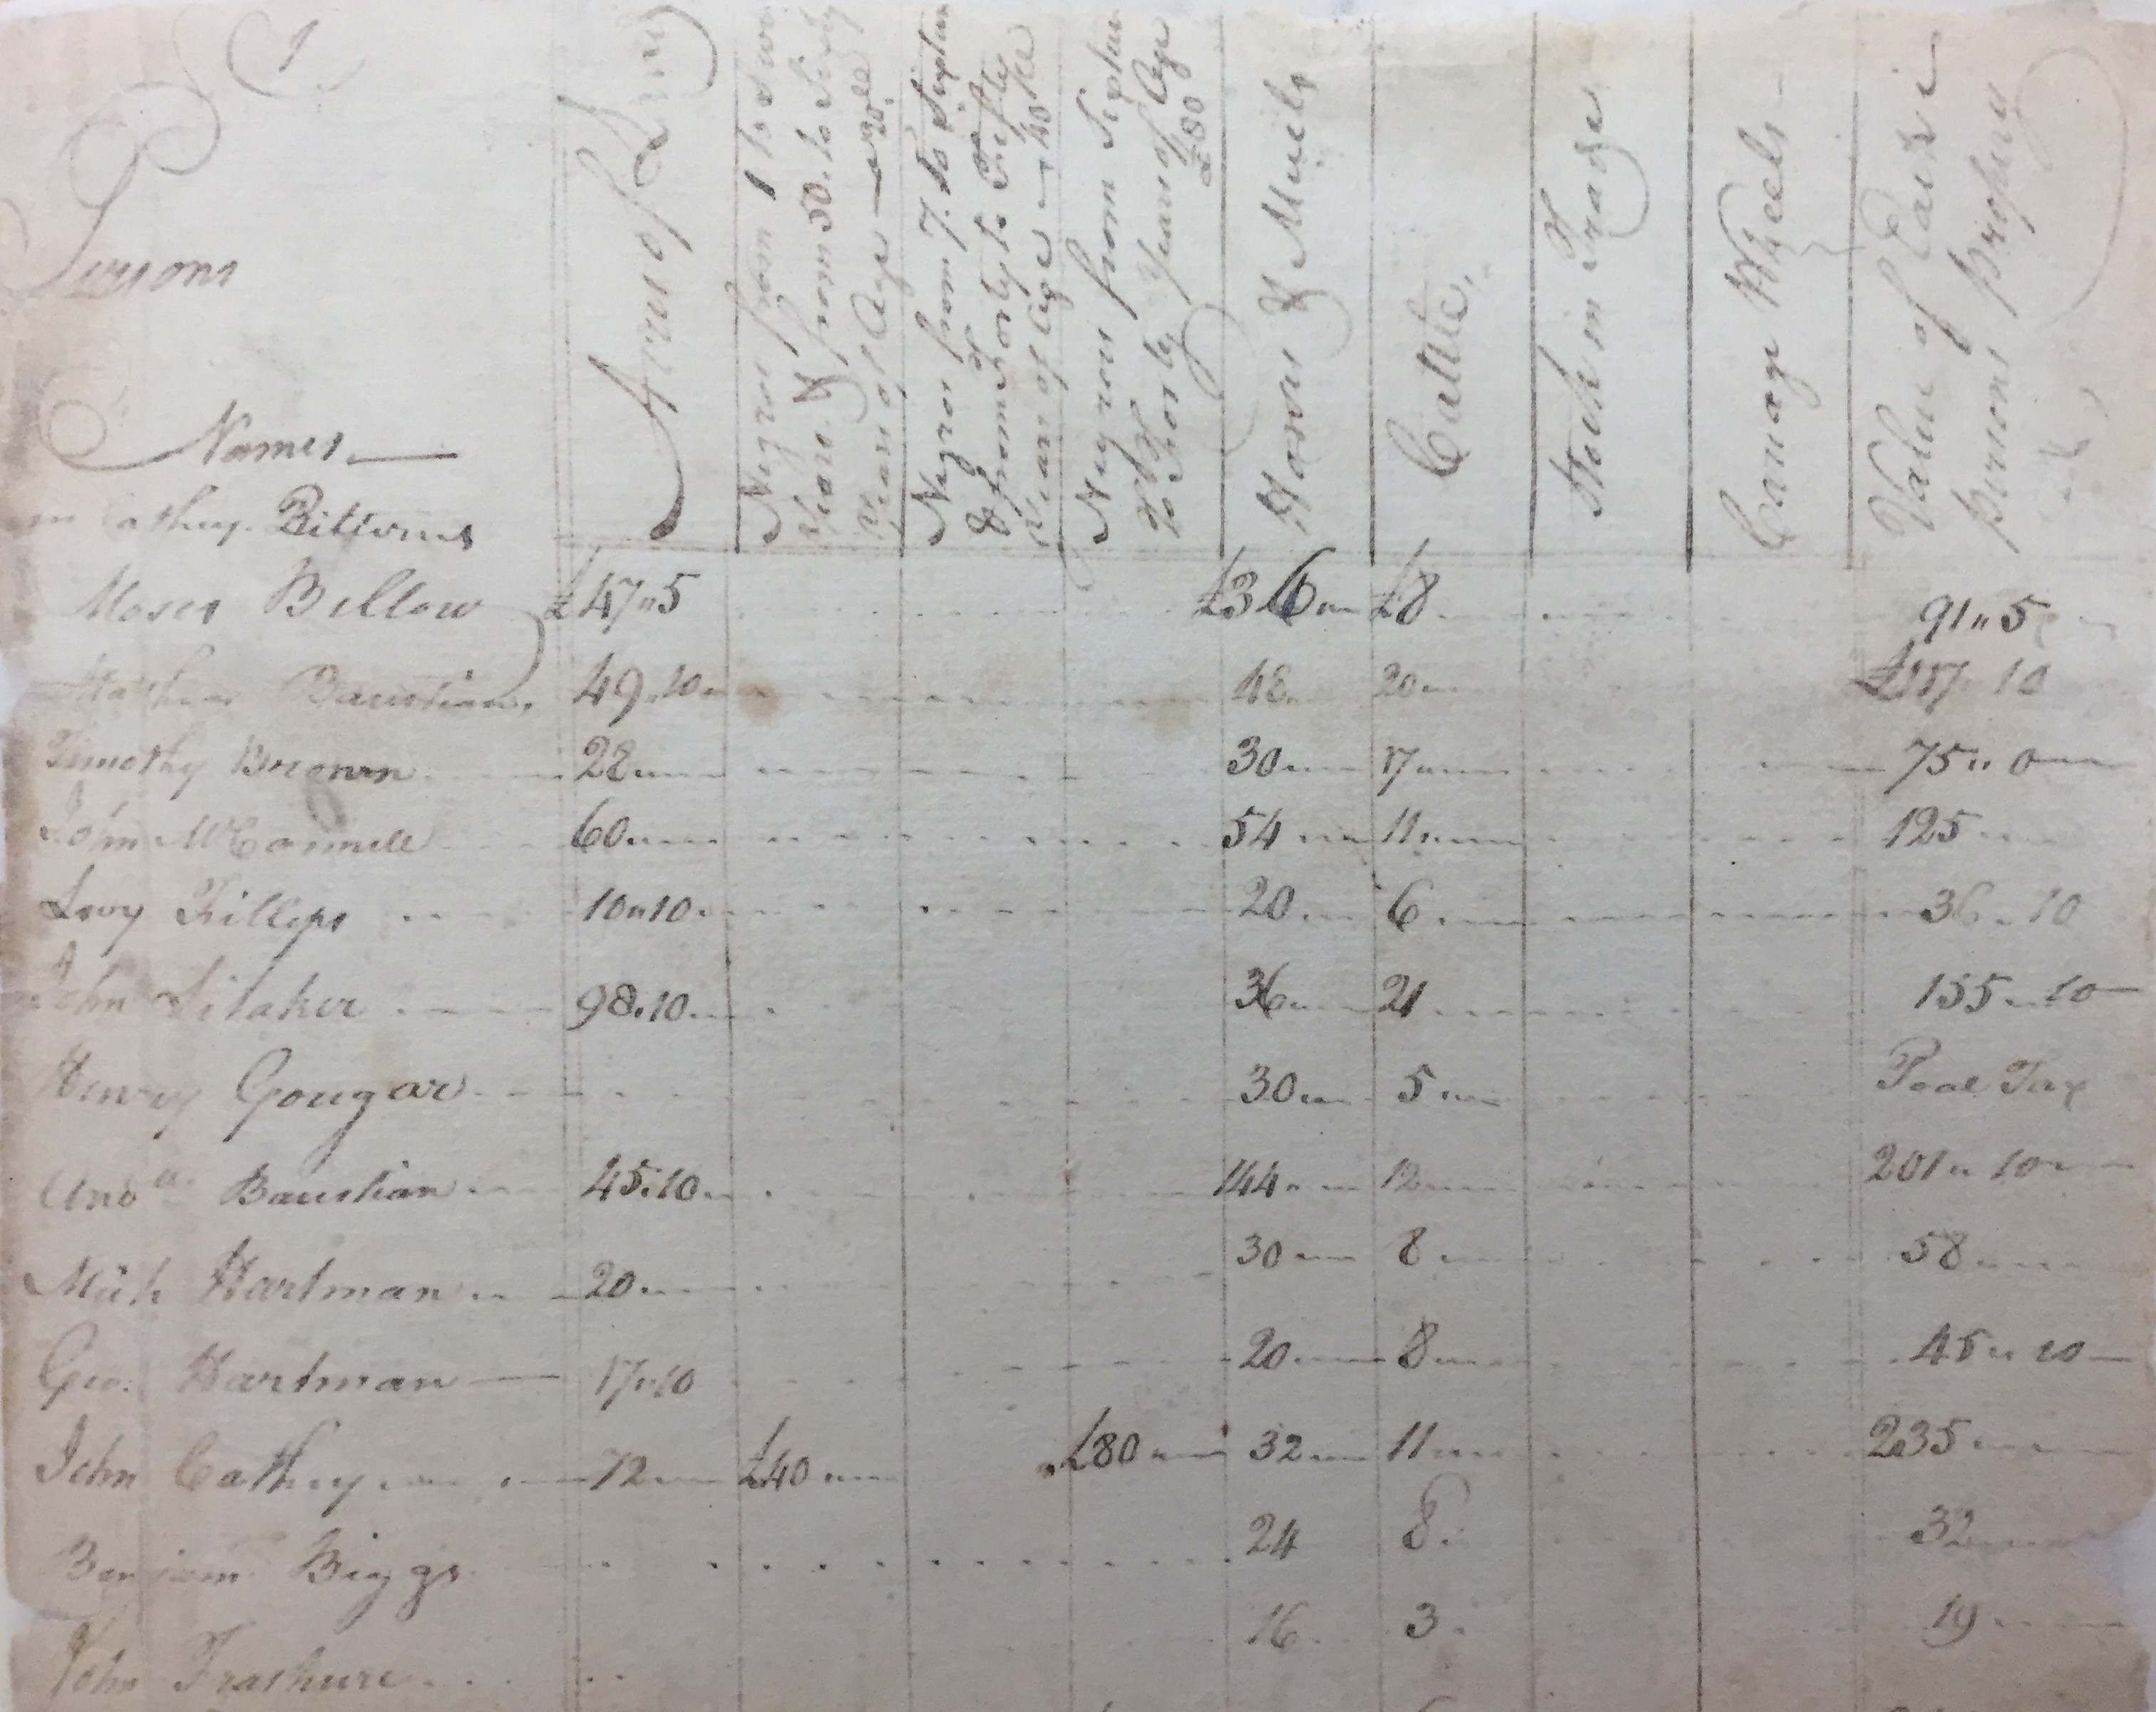 1
Persons
Names
Acres of Land
Negros from 1 to
Years & from 50. to Sixty
Years of Age — £20 Pr
Negros from 7. to Sixteen
& from Forty to Fifty
Years of Age — £40 Pce
Negroes from Sixteen
to Forty Years of Age
£80
Horses & Muels
Cattle,
Stock in Trade
Carriage Wheels
Value of Each
persons property
Cathey
Moses Bellow £47"5 £36 £8 91"5
Baustian 49.10 48 20 £117 10
Timothy Brown 28 30 17 75"0
John McConnell 60 54 11 125
Levy Fillips 10"10 20 6 36"10
John Litaker 98.10 36 21 155"10
Henry Gougar 30 5 Poal Tax
Andw Baustian 45.10 144 12 201"10
Mich Hartman 20 30 8 58
Geo. Hartman 17"10 20 8 45"10
John Cathey 72 £40 £80 32 11 235
Benjam Biggs 24 8 32
John Frashure 16 3 19